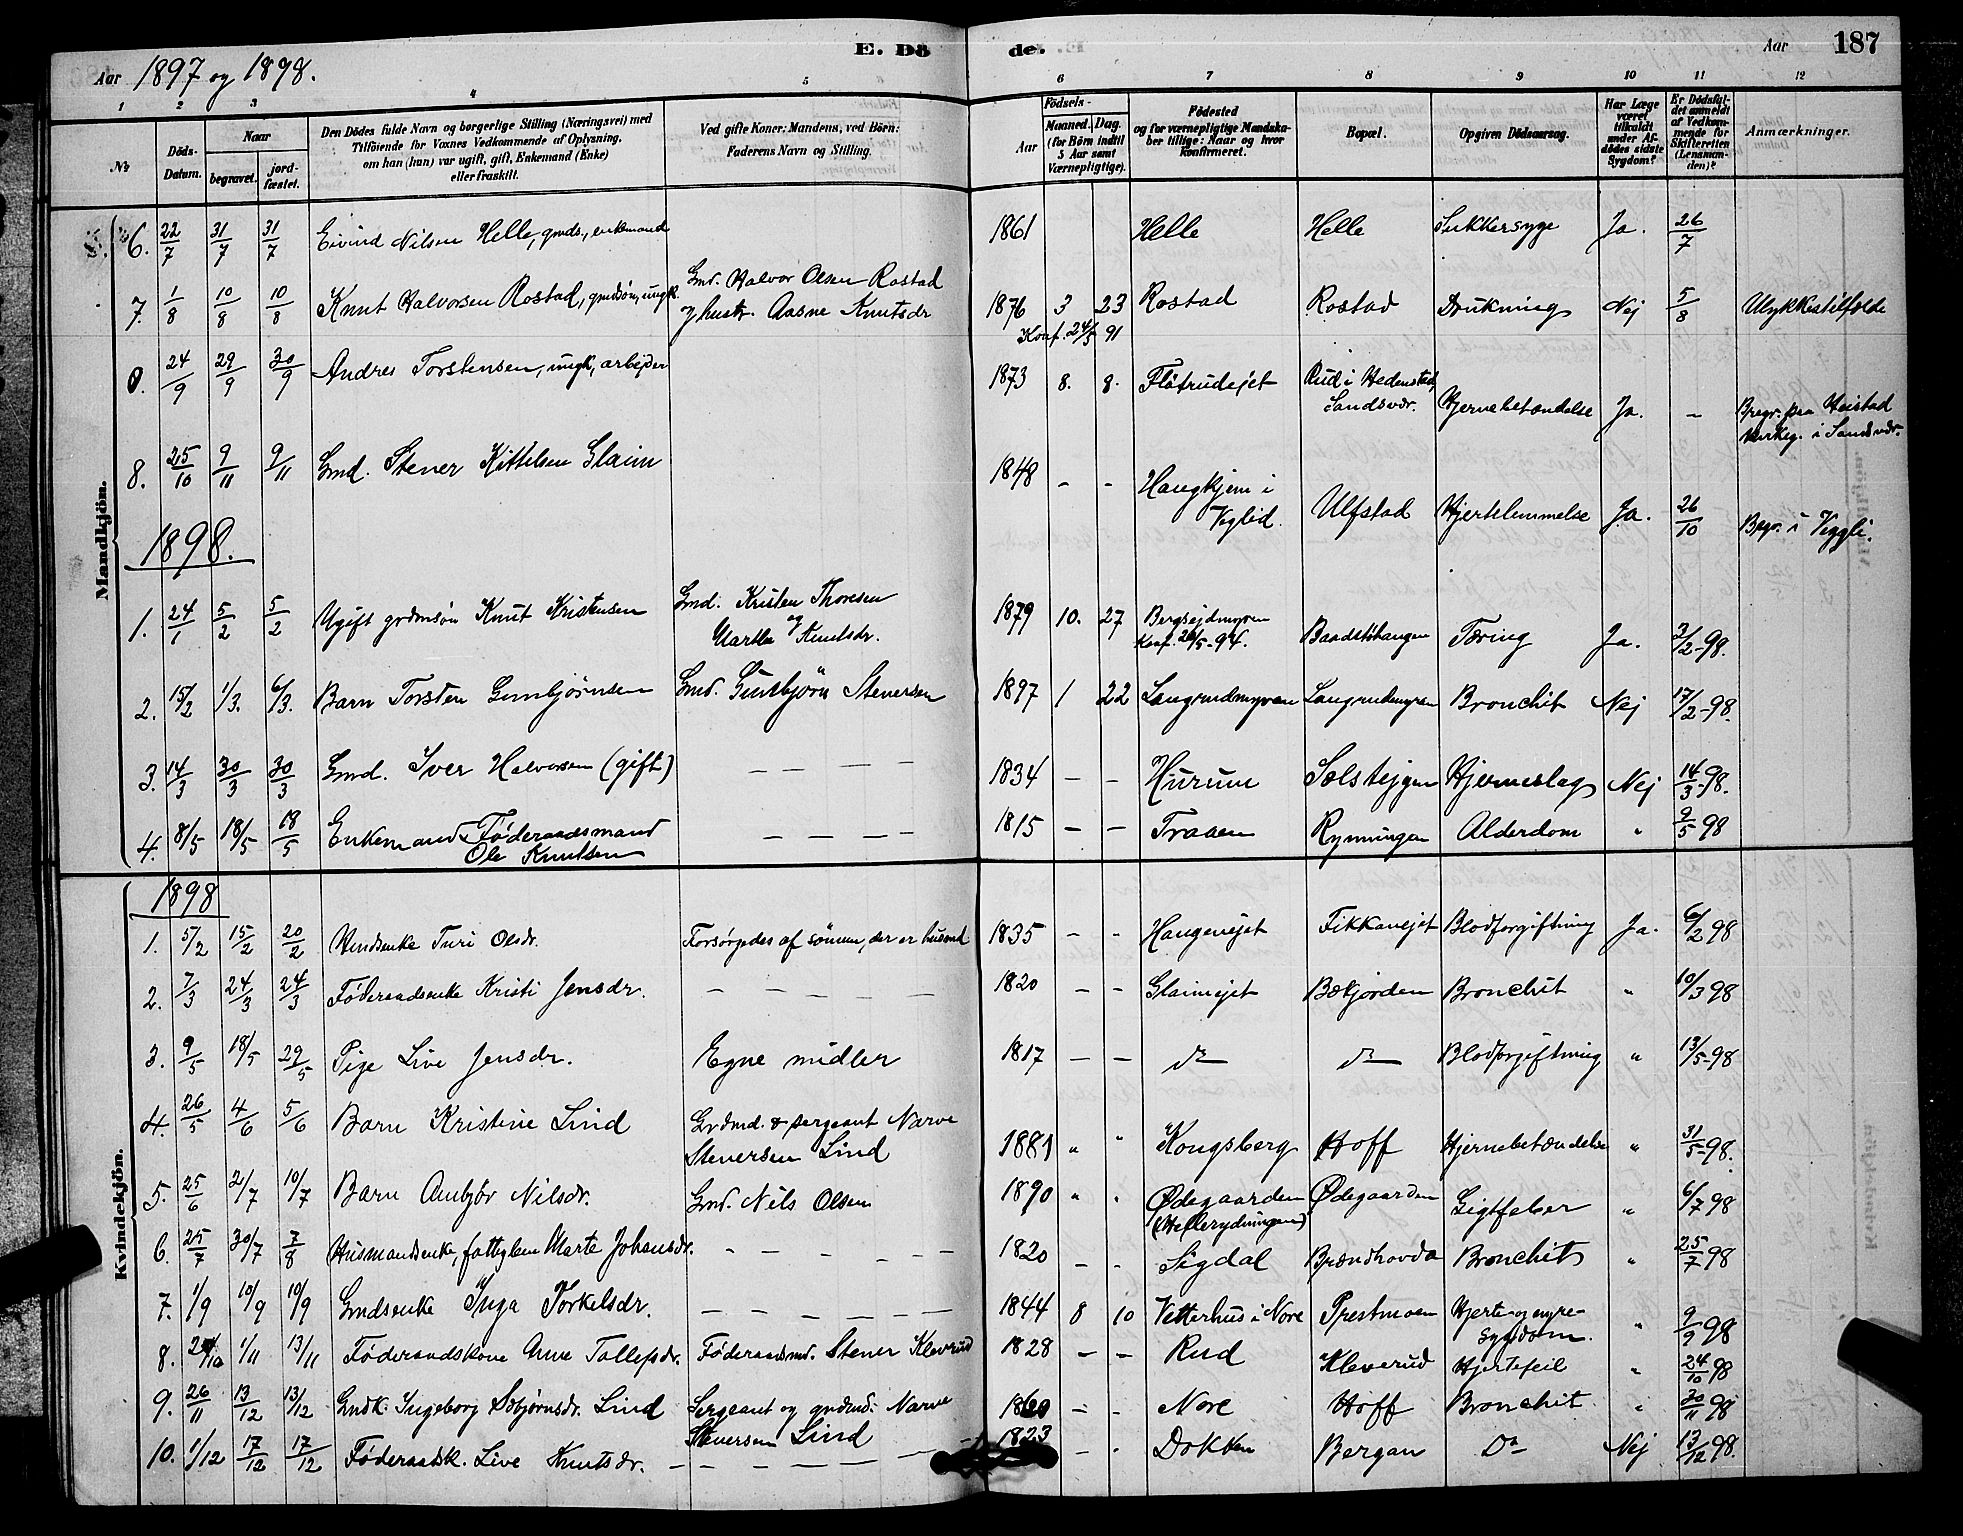 E. Dö de.
Aar 1897 og 1898.
Aar 187
1 2 3 4 5 6 7 8 9 10 11 12
No
Döds-Datum.
Naar
begravet.
jord-fæstet.
Den Dödes fulde Navn og borgerlige Stilling (Næringsvei) med
Tilföiende for Voxnes Vedkommende af Oplysning,
om han (hun) var ugift, gift, Enkemand (Enke)
eller fraskilt.
Ved gifte Koner: Mandens, ved Börn:
Faderens Navn og Stilling.
Födsels-
Aar
Maaned. Dag.
(for Börn indtil
5 Aar samt
Værnepligtige).
Födested
og for værnepligtige Mandska-
ber tillige: Naar og hvor
konfirmeret.
Bopæl.
Opgiven Dödsaarsag.
Har Læge
været
tilkaldt
under Af-
dödes sidste
Sygdom?
Er Dödsfal-
det anmeldt
af Vedkom-
mende for
Skifteretten
(Lensman-
den)?
Anmærkninger.
Mandkjön.
6. 22/7 31/7 31/7 Eivind Nilsen Helle, gmds., enkemand 1861 Helle Helle Sukkersyge Ja. 26/7
7. 1/8 10/8 10/8 Knut Halvorsen Rostad, gmdsøn, ungk. Gmd. Halvor Olsen Rostad
og hustr. Aasne Knutsdr 1876 3 23 Rostad Rostad Drukning Nej 5/8 Ulykkestilfælde
Konf. 24/5 91
0. 24/9 29/9 30/9 Andres Torstensen, ungk, arbejder 1873 8. 8. Flåtrudejet Rud i Hedenstad,
Sandsvær. Hjernebetændelse Ja. - Begr. paa Heistad
kirkeg. i Sandsvær.
8. 25/10 9/11 9/11 Gmd. Stener Kittelsen Glaim 1848 - - Haugkjem i
Veglid. Ulfstad Hjertelammelse Ja. 26/10 Begr. i Veggli.
1898.
1. 24/1 5/2 5/2 Ugift grdmsön Knut Kristensen Gmd. Kristen Thoresen
og
Martha Knutsdr. 1879 10. 27 Bergsejdmyren
Konf. 26/5-94. Baadstøhaugen Tæring Ja. 3/2-98.
2. 15/2 1/3. 6/3. Barn Torsten Gunbjørnsen Gmd. Gunbjörn Stenersen 1897 1 22 Langrudmyren Langrudmyren Bronchit Nej 17/2-98.
3. 14/3 30/3 30/3 Gmd. Iver Halvorsen (gift) — — — — 1834 - - Hurum Solstejgen Hjerneslag Nej 14/3-98.
4. 8/5 18/5 18/5 Enkemand - Føderaadsmand
Ole Knutsen — — — — 1815 - - Traaen Rynningen Alderdom " 9/5 98
Kvindekjön.
1898
1. 5/2 15/2 20/2 Husmdsenke Turi Olsdr. Forsørgedes af sönnen, der er husmd 1835 - - Haugenejet Fikkanejet Blodforgiftning Ja. 6/2 98
2. 7/3 24/3 24/3 Føderaadsenke Kristi Jensdr. — — — — — 1820 - - Glaimejet Bækjorden Bronchit " 10/3 98
3. 9/5 18/5 29/5 Pige Live Jensdr. Egne midler 1817 - - do do Blodforgiftning " 13/5-98
4. 26/5 4/6 5/6 Barn Kristine Lind Grdmd. & sergeant Narve
Stenersen Lind 1881 " " Kongsberg Hoff Hjernebetændelse " 31/5-98.
5. 25/6 2/7 10/7 Barn Ambjör Nilsdr. Gmd. Nils Olsen 1890 " " Ødegaarden
(Hellerydningen) Ødegaarden Gigtfeber " 6/7 98
6. 25/7 30/7 7/8 Husmandsenke, fattiglem Marte Johansdr. - - - - - 1820 - - Sigdal Brændhovda Bronchit " 25/7 98
7. 1/9 10/9 10/9 Gmdsenke Inga Torkelsdr. — — — — — 1844 8 10 Vetterhus i Nore Prestmoen Hjerte- og nyre-
sygdom. " 9/9 98
8. 1/11 13/11 Føderaadskone Anne Tollefsdr. Føderaadsmd. Stener Kleverud 1828 - - Rud Kleverud Hjertefeil " 24/10 98
9. 26/11 13/12 13/12 Gmdk. Ingeborg Asbjørnsdr. Lind Sergeant og grdmd. Narve
Stenersen Lind - - Nore Hoff Bronchit " 30/11 98
10. 1/12 17/12 17/12 Føderaadsk. Live Knutsdr. — — — — — 1823 - - Dokken Bergan Do Nej 13/12 98.